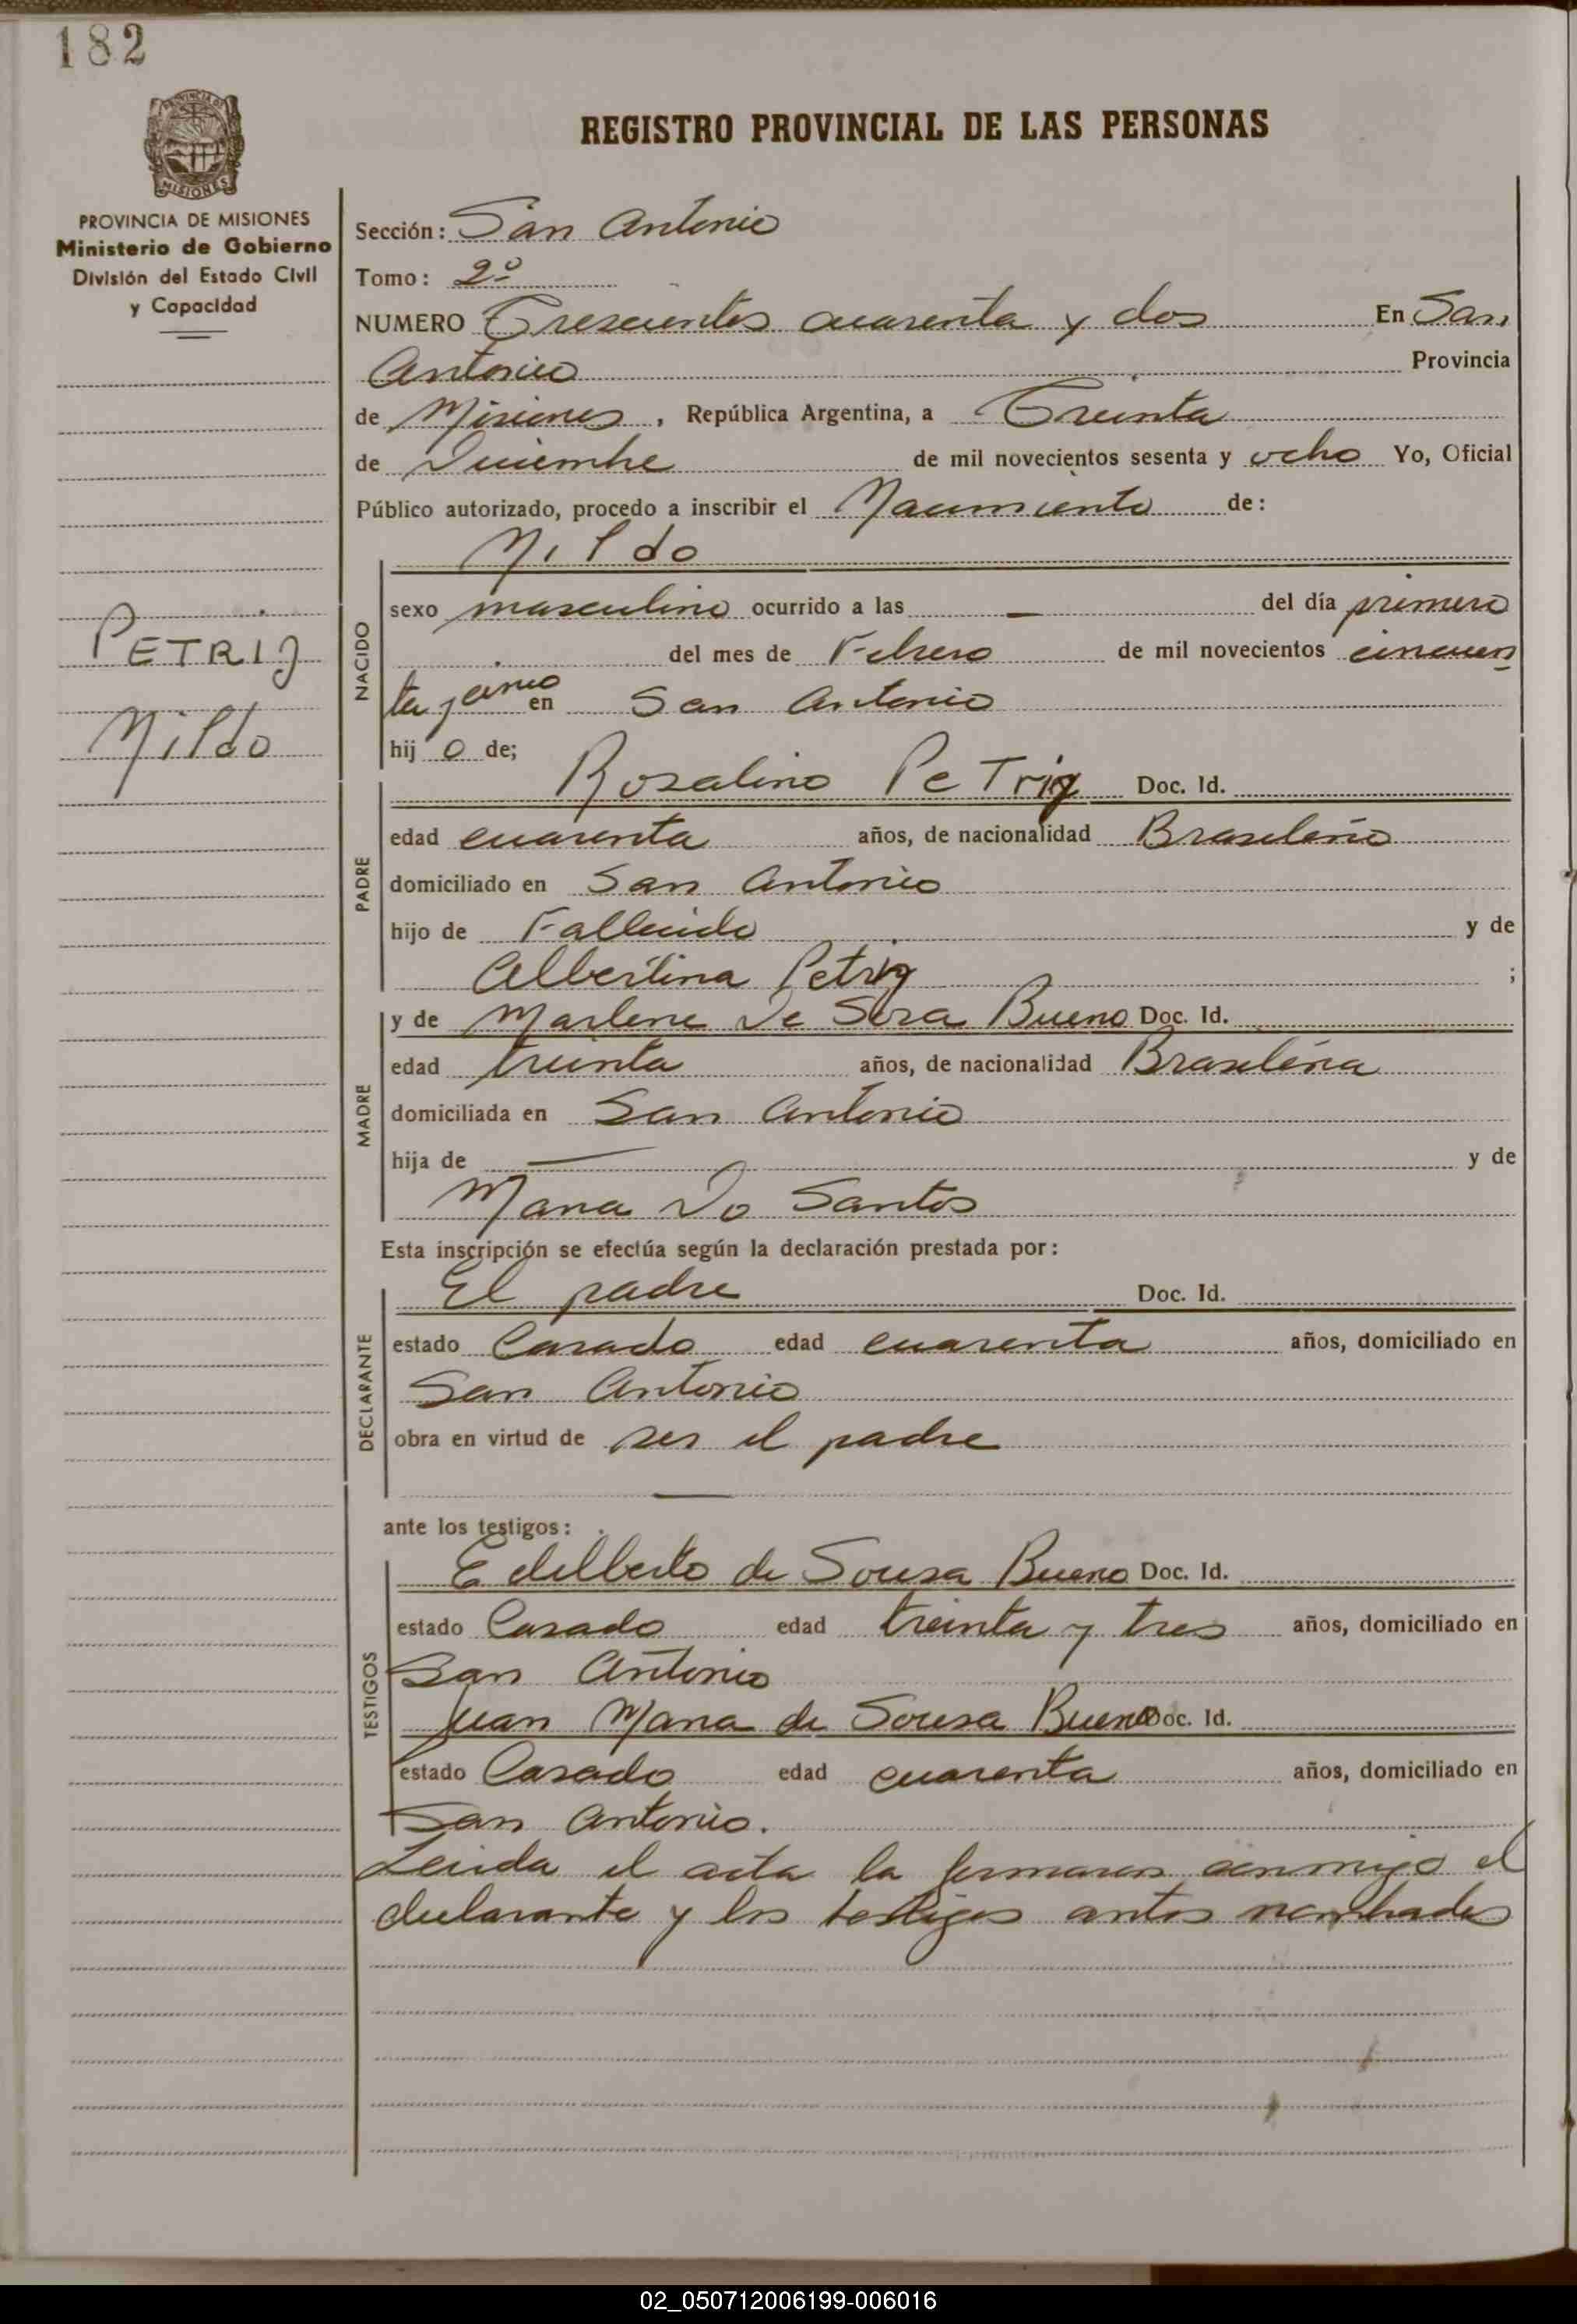 182
REGISTRO PROVINCIAL DE LAS PERSONAS
PROVINCIA DE MISIONES
Ministerio de Gobierno
División del Estado Civil
y Capacidad
PETRIG
Nildo
Sección: San Antonio
Tomo: 2º
NUMERO Trescientos cuarenta y dos En San
Antonio Provincia
de Misiones, República Argentina, a Treinta
de Diciembre de mil novecientos sesenta y ocho Yo, Oficial
Público autorizado, procedo a inscribir el Nacimiento de:
Nildo
NACIDO
sexo masculino ocurrido a las — del día primero
del mes de Febrero de mil novecientos cincuen
ta y cinco en San Antonio
hijo de;
PADRE
Rosalino Petrig Doc. Id.
edad cuarenta años, de nacionalidad Brasileño
domiciliado en San Antonio
hijo de Fallecido y de
Albertina Petrig ;
MADRE
y de Marlene De Bueno Doc. Id.
edad treinta años, de nacionalidad Brasileña
domiciliada en San Antonio
hija de — y de
Maria Do Santos
Esta inscripción se efectúa según la declaración prestada por:
DECLARANTE
El padre Doc. Id.
estado Casado edad cuarenta años, domiciliado en
San Antonio
obra en virtud de ser el padre
—
ante los testigos:
TESTIGOS
Edilberto de Sousa Bueno Doc. Id.
estado Casado edad treinta y tres años, domiciliado en
San Antonio
Juan Maria de Sousa Bueno Doc. Id.
estado Casado edad cuarenta años, domiciliado en
San Antonio.
Leida el acta la firmaron conmigo el
declarante y los testigos antes nombrados
02_050712006199-006016